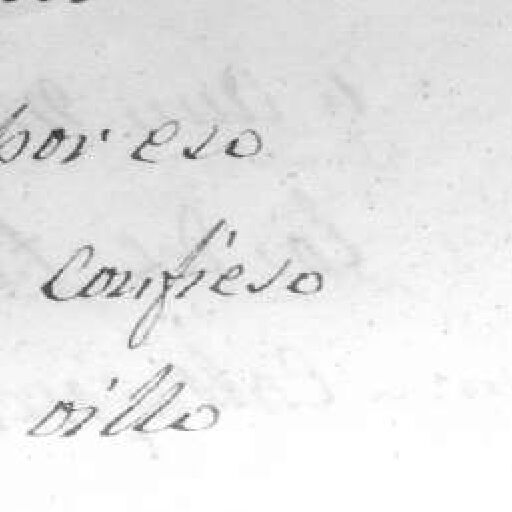 por eso
confieso
oillo